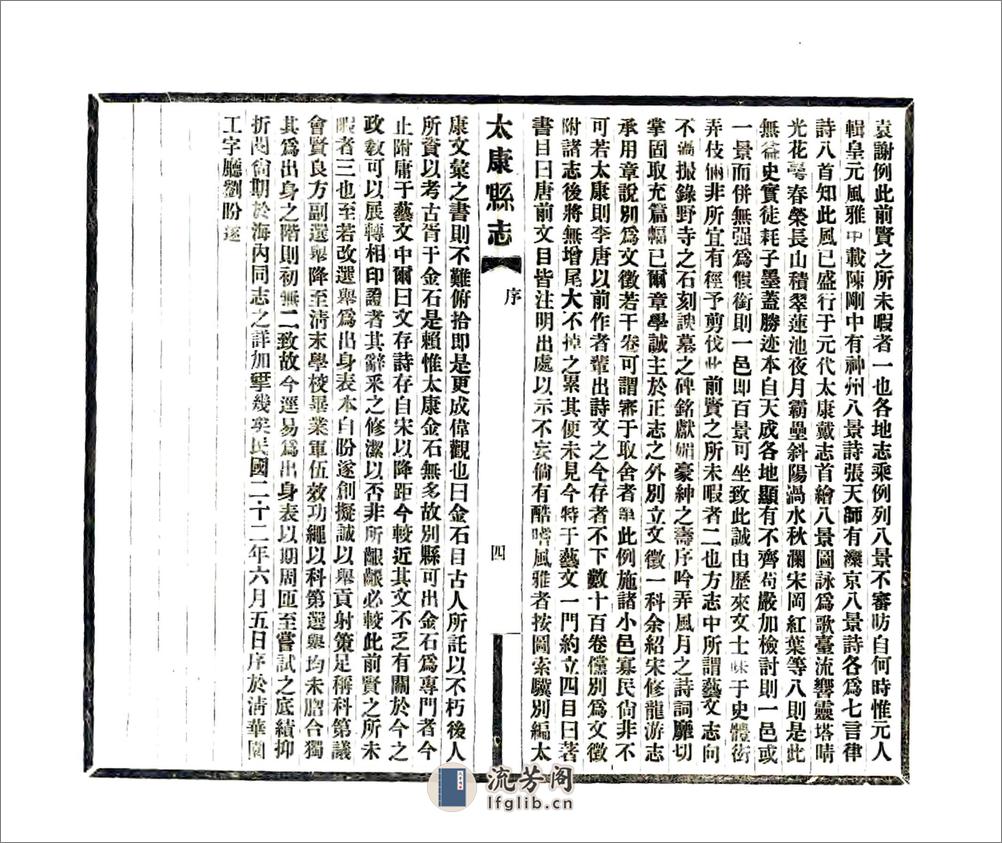 袁謝例此前賢之所未暇者一也各地志乘例列八景不審昉自何時惟元人
輯皇元風雅中載陳剛中有神州八景詩張天師有灤京八景詩各爲七言律
詩八首知此風已盛行于元代太康戴志首繪八景圖詠爲歌臺流響靈塔晴
光花萼春榮長山積翠蓮池夜月霸壘斜陽渦水秋瀾宋岡紅葉等八則是此
無益史實徒耗子墨蓋勝迹本自天成各地顯有不齊苟嚴加檢討則一邑或
一景而併無强爲假銜則一邑即百景可坐致此誠由歷來文士昧于史體衒
弄伎倆非所宜有徑予剪伐此前賢之所未暇者二也方志中所謂藝文志向
不過撮錄野寺之石刻諛墓之碑銘獻媚豪紳之壽序吟弄風月之詩詞靡切
掌固取充篇幅已爾章學誠主於正志之外別立文徵一科余紹宋修龍游志
承用章說別爲文徵若干卷可謂審于取舍者第此例施諸小邑寡民尙非不
可若太康則李唐以前作者輩出詩文之今存者不下數十百卷儻別爲文徵
附諸志後將無增尾大不掉之累其便未見今特于藝文一門約立四目曰著
書目曰唐前文目皆注明出處以示不妄倘有酷嗜風雅者按圖索驥別編太
太康縣志
序
四
康文彙之書則不難俯拾即是更成偉觀也曰金石目古人所託以不朽後人
所資以考古胥于金石是賴惟太康金石無多故別縣可出金石爲專門者今
止附庸于藝文中爾曰文存詩存自宋以降距今較近其文不乏有關於今之
政敎可以展轉相印證者其辭釆之修潔以否非所齦齦必較此前賢之所未
暇者三也至若改選舉爲出身表本自盼遂創擬誠以舉貢射策足稱科第議
會賢良方副選舉降至淸末學校畢業軍伍效功繩以科第選舉均未脗合獨
其爲出身之階則初無二致故今逕易爲出身表以期周匝至嘗試之底績抑
折閱尙期於海內同志之詳加擘幾矣民國二十二年六月五日序於淸華園
工字廳劉盼遂
流芳阁
lfglib.cn